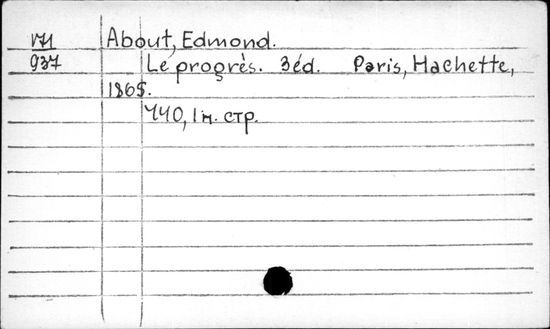 VI71 About, Edmond.
937 Le progrès. 3 éd. Paris, Hachette,
1865.
440, 1 н. стр.